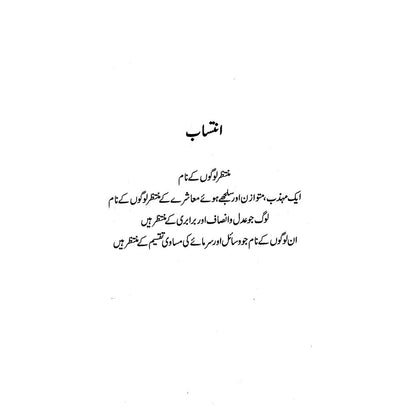 انتساب
منتظر لوگوں کے نام
ایک مہذب، متوازن اور سلجھے ہوئے معاشرے کے منتظر لوگوں کے نام
لوگ جو عدل و انصاف اور برابری کے منتظر ہیں
ان لوگوں کے نام جو وسائل اور سرمائے کی مساوی تقسیم کے منتظر ہیں